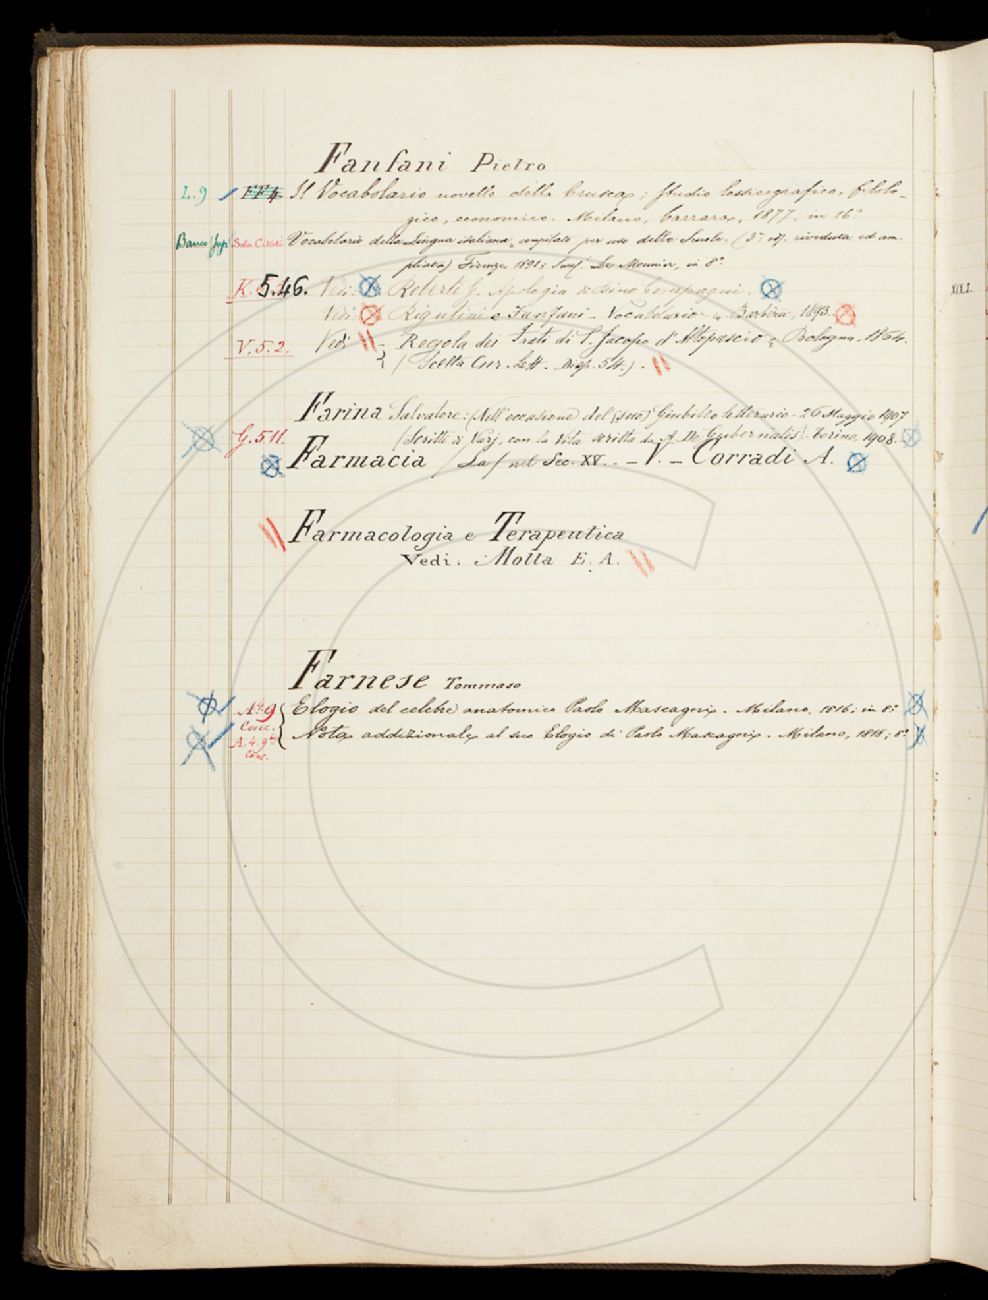 Fanfani Pietro
L. 9 FF 4 Il Vocabolario novello della Crusca; Studio lessicografico, filolo-
gico, economico. Milano, Carrara, 1877; in 16º
Banco Sala Vocabolario della Lingua italiana, compilato per uso delle Scuole. (3ª ediz. riveduta ed am-
pliata) Firenze, 1891; Succ. Le Monnier, in 8º
K. 5.46. Vedi G. Apologia di Dino Compagni.
Vedi Rigutini e Fanfani - Vocabolario - Barbèra, 1893.
V. 5. 2. Vedi - Regola dei Frati di S. Jacopo d'Altopascio - Bologna. 1864.
(Scelta Cur. Lett. Disp. 54.).
Farina Salvatore: (Nell'occasione del (suo) Giubileo letterario - 26 Maggio 1907
G. 511. (Scritti di Varj, con la Vita scritta da A. De Gubernatis). Torino, 1908.
Farmacia (La) nel Sec. XV. - V. - Corradi A.
Farmacologia e Terapeutica
Vedi: Motta E. A.
Farnese Tommaso
9 Elogio del celebre anatomico Paolo Mascagni. Milano, 1816; in 8º
Conc.
A. 4. 9 Nota addizionale al suo Elogio di Paolo Mascagni. Milano, 1818; 8º
Conc.
XIX.I.
C